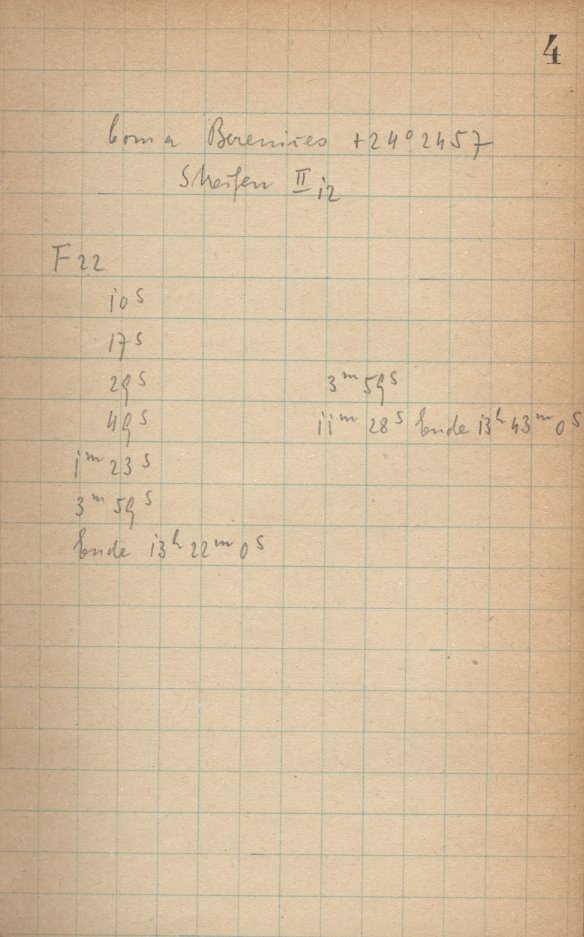 4
Coma Berenices +24° 2457
Streifen II 12
F 22
10ˢ
17ˢ
29ˢ
49ˢ
1ᵐ 23ˢ
3ᵐ 59ˢ
Ende 13ʰ 22ᵐ 0ˢ
3ᵐ 59ˢ
11ᵐ 28ˢ Ende 13ʰ 43ᵐ 0ˢ